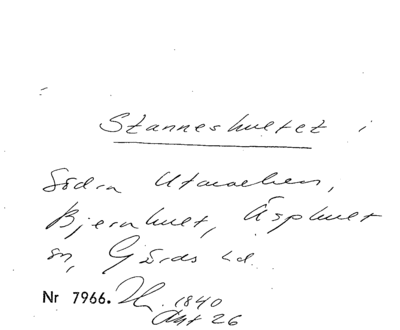 Stanneshultet i
Södra Utmarken,
Bjernhult, Äsphult
sn, Gärds hd.
Nr 7966. 1840
Akt 26